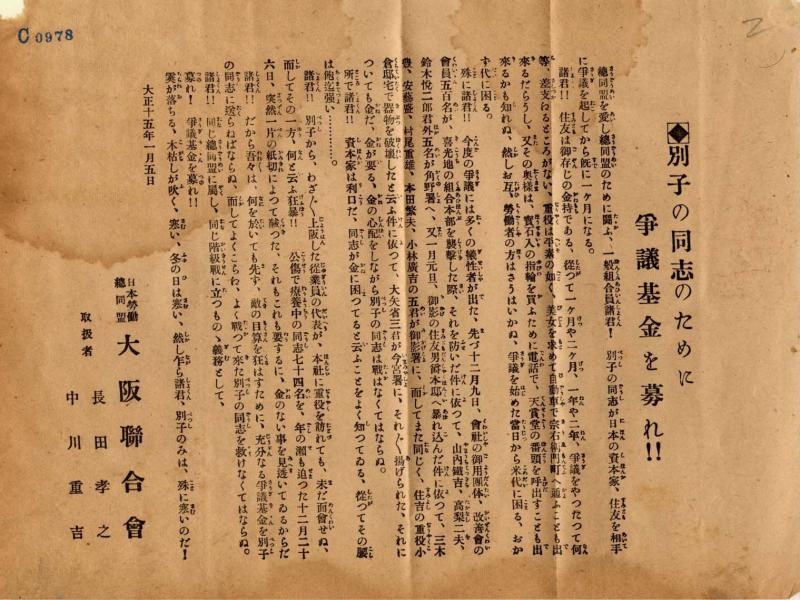 C0978
2
別子の同志のために
爭議基金を募れ!!
總同盟を愛し總同盟のために鬪ふ、一般組合員諸君! 別子の同志が日本の資本家、住友を相手
に爭議を起してから既に一ケ月になる。
諸君!! 住友は御存じの金持である、從つて一ケ月や二ケ月、一年や二年、爭議をやつたつて何
等、差支ねるところがない、重役は平素の如く、美女を求めて自動車で宗右衞門町へ通ふことも出
來るだらうし、又その奥樣は、寶石入の指輪を買ふために電話で、天賞堂の番頭を呼出すことも出
來るかも知れぬ、然しお互、勞働者の方はさうはいかぬ、爭議を始めた當日から米代に困る、おか
ず代に困る。
殊に諸君!! 今度の爭議には多くの犠牲者が出た、先づ十二月九日、會社の御用團体、改善會の
會員五百名が、喜光地の組合本部を襲撃した際、それを防いだ件に依つて、山内鐵吉、高梨二夫、
鈴木悅二郎君外五名が角野署へ、又一月元旦、御影の住友男爵本邸へ暴れ込んだ件に依つて、三木
豊、安藝盛、村尾重雄、本田繁夫、小林廣吉の五君が御影署に、而してまた同じく、住吉の重役小
倉邸宅で器物を破壊したと云ふ件に依つて、大矢省三君が今宮署に、それ〲揚げられた、それに
ついても金だ、金が要る、金の心配をしながら別子の同志は戰はなくてはならぬ。
所で諸君!! 資本家は利口だ、同志が金に困つてると云ふことをよく知つてゐる、從つてその腰
は他迄强い…………。
諸君!! 別子から、わざ〲上阪した從業員の代表が、本社に重役を訪れても、未だ面會せぬ、
而してその一方、何と云ふ狂暴!! 公傷で療養中の同志七十四名を、年の瀬も迫つた十二月二十
六日、突然一片の紙切によつて馘つた、それもこれも要するに、金のない事を見透いてゐるからだ
諸君!! だから吾々は、何を於いても先す、敵の目算を狂はすために、充分なる爭議基金を別子
の同志に送らねばならぬ、而してよくこらわ、よく戰つて來た別子の同志を救けなくてはならぬ。
諸君!! 同じ總同盟に屬し、同じ階級戰に立つものゝ義務として、
募れ! 爭議基金を募れ!!
霙が落ちる、木枯しが吹く、寒い、冬の日は寒い、然し乍ら諸君、別子のみは、殊に寒いのだ!
大正十五年一月五日
日本勞働
總同盟
大阪聯合會
取扱者
長田孝之
中川重吉